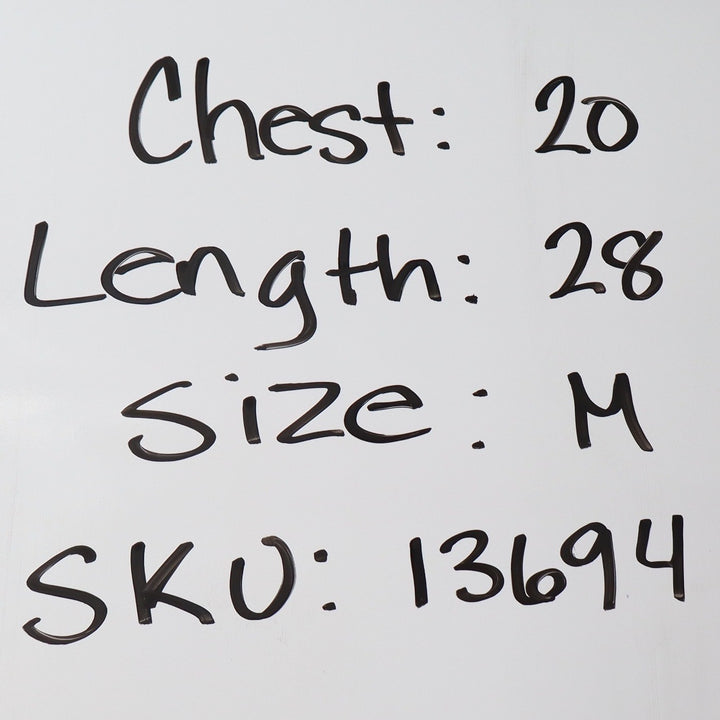 Chest: 20
Length: 28
Size: M
SKU: 13694